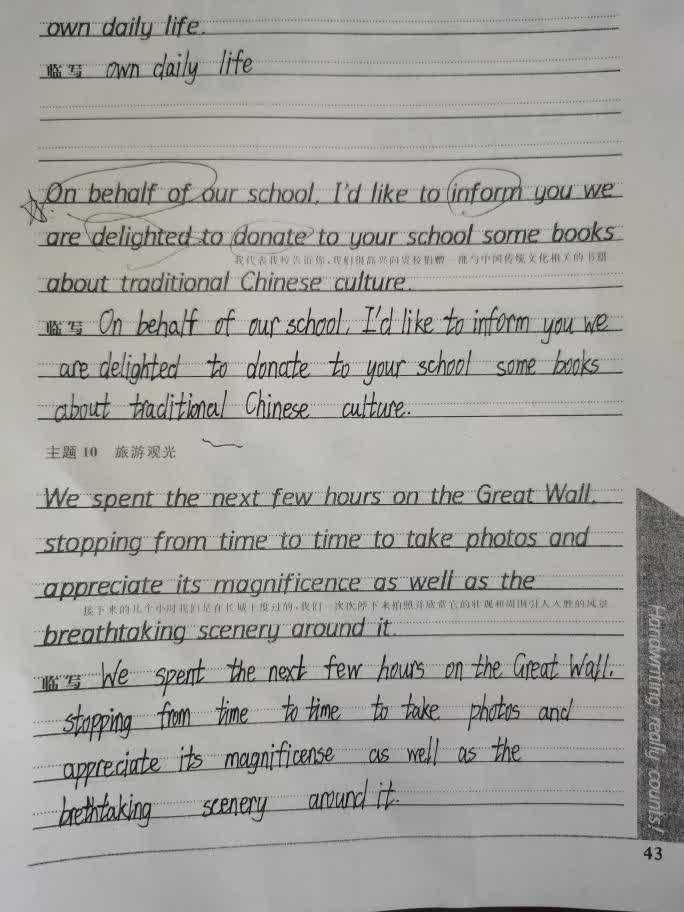 own daily life.
临写 own daily life
On behalf of our school, I'd like to inform you we
are delighted to donate to your school some books
我代表我校告诉你,我们很高兴向贵校捐赠一批与中国传统文化相关的书籍
about traditional Chinese culture.
临写 On behalf of our school, I'd like to inform you we
are delighted to donate to your school some books
about traditional Chinese culture.
主题 10 旅游观光
We spent the next few hours on the Great Wall,
stopping from time to time to take photos and
appreciate its magnificence as well as the
接下来的几个小时我们是在长城上度过的,我们一次次停下来拍照并欣赏它的壮观和周围引人入胜的风景
breathtaking scenery around it.
临写 We spent the next few hours on the Great Wall.
stopping from time to time to take photos and
appreciate its magnificense as well as the
brethtaking scenery around it.
Handwriting really counts!
43